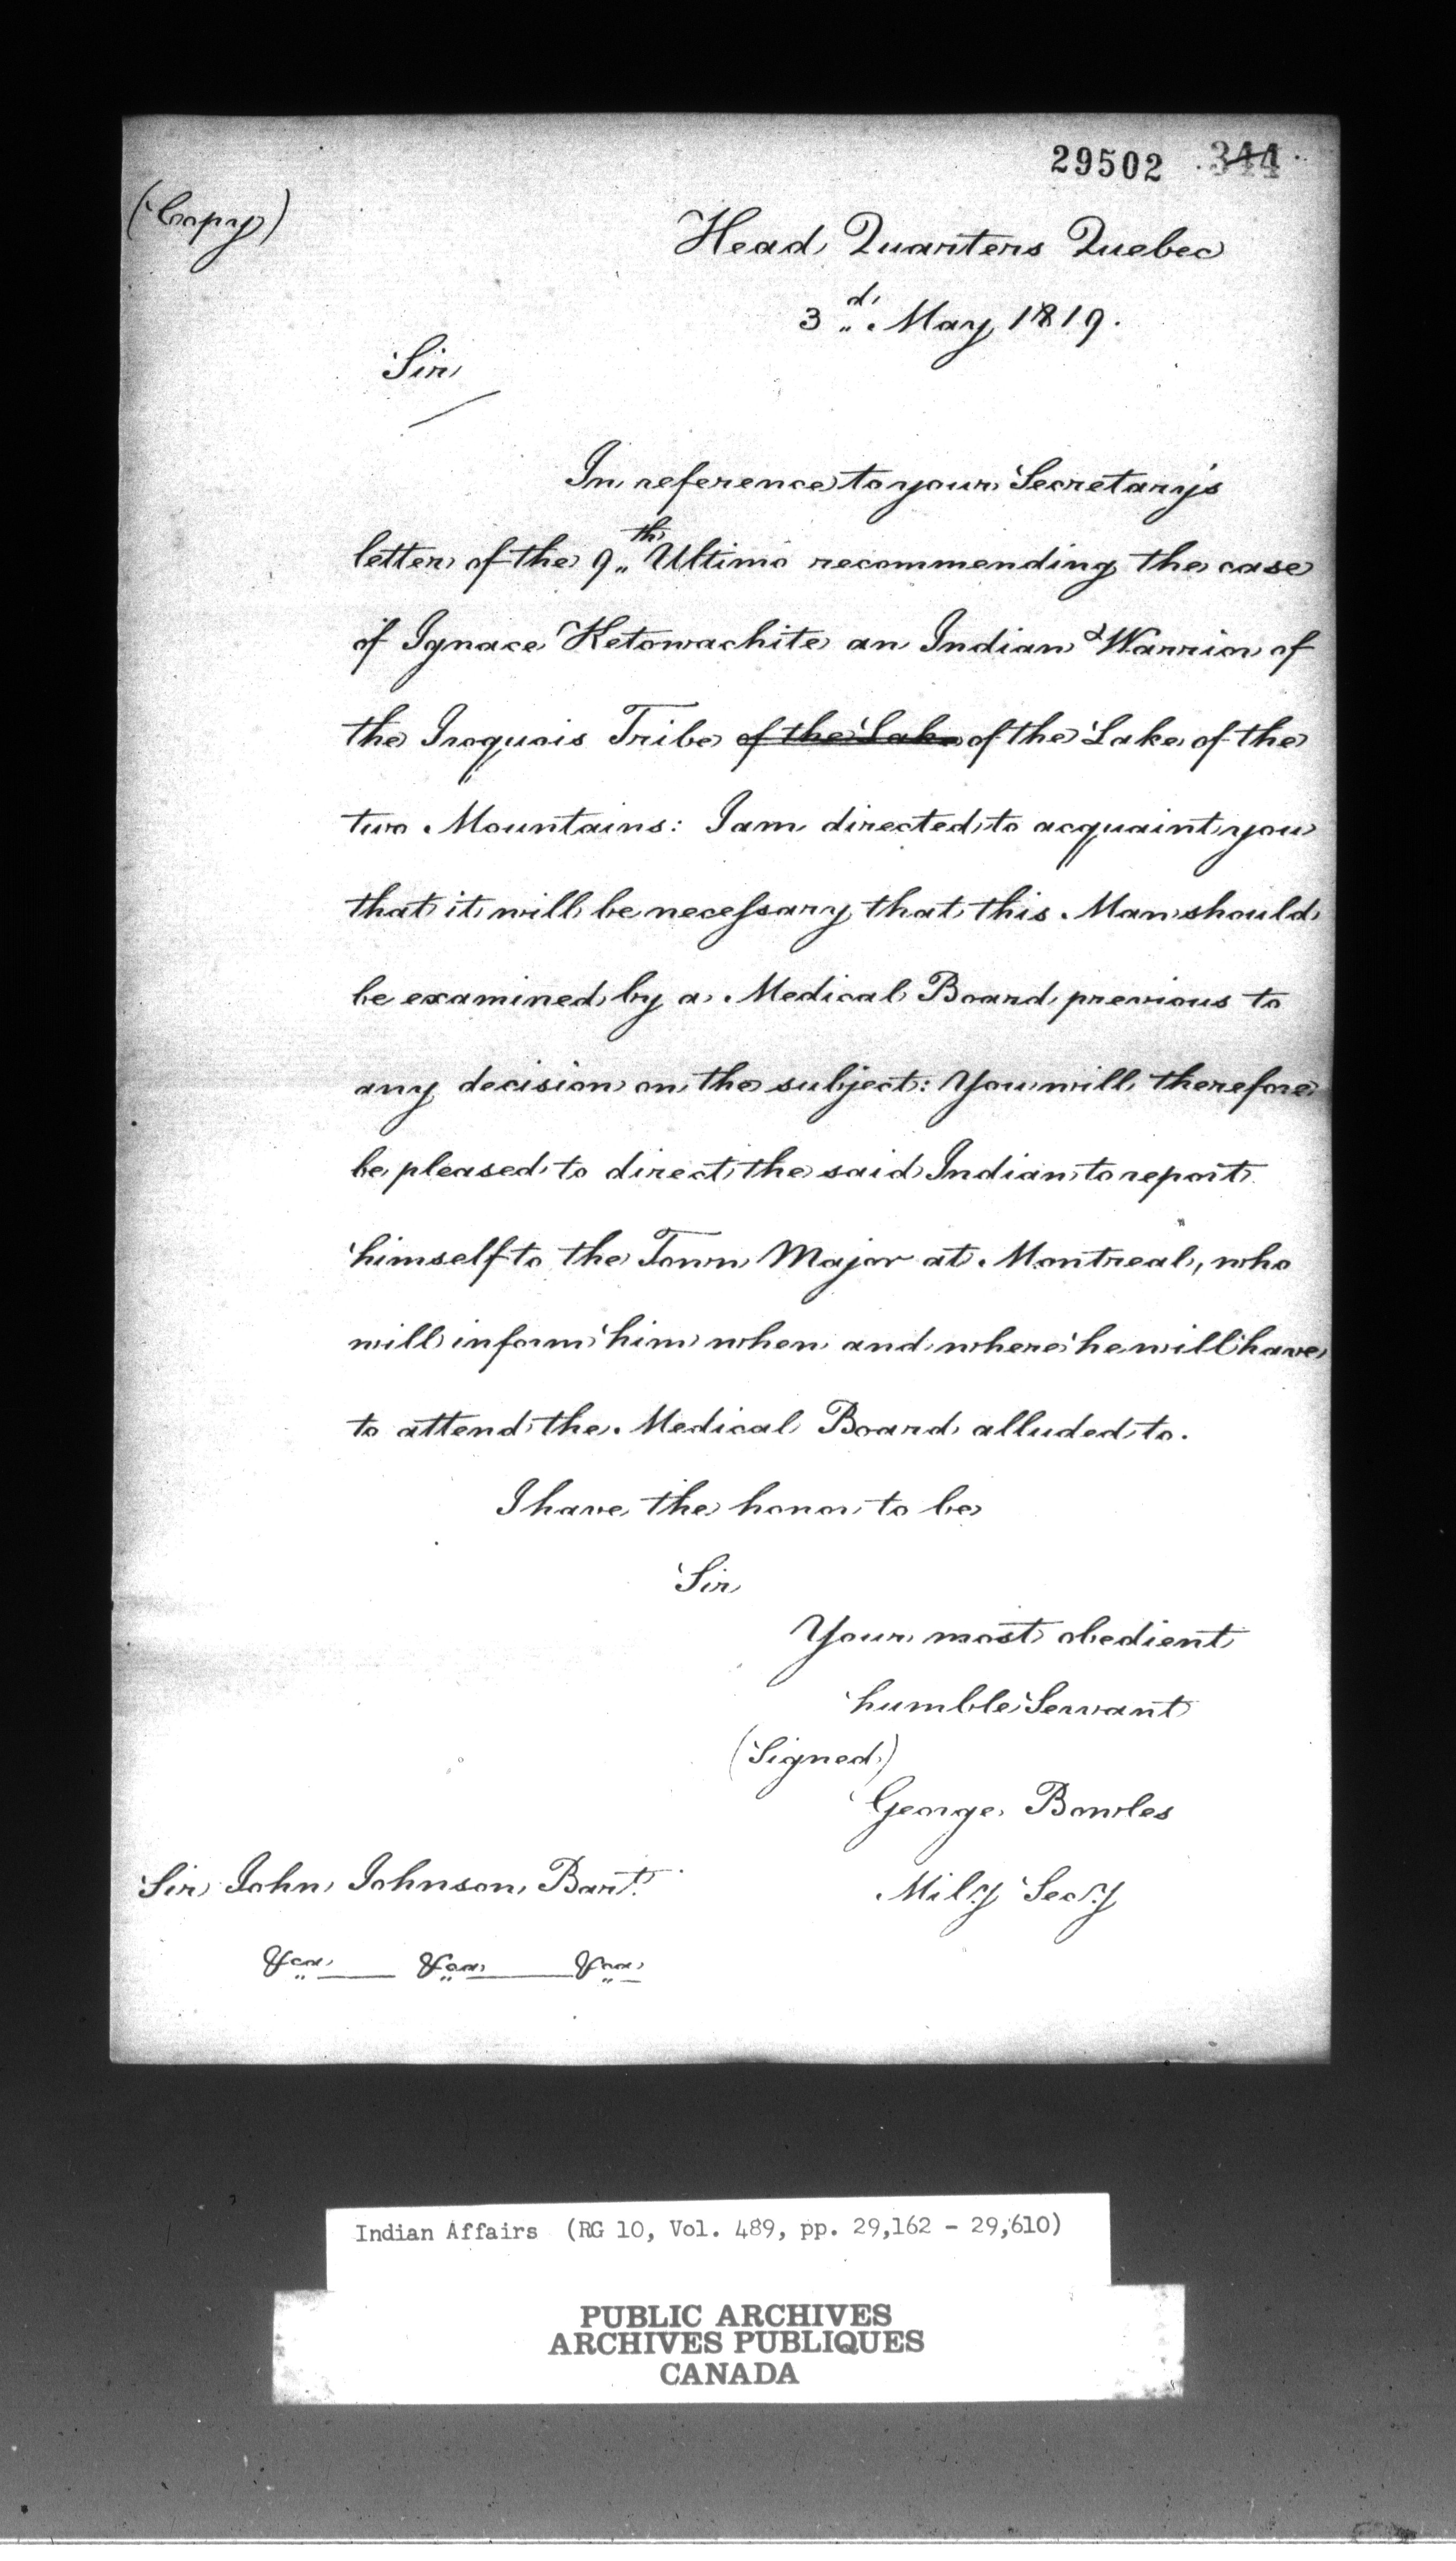 29502 344
(Copy)
Head Quarters Quebec
3d. May 1819.
Sir
In reference to your Secretary's
letter of the 9th Ultimo recommending the case
of Ignace Ketowachite an Indian & Warrior of
the Iroquois Tribe of the Lake of the Lake of the
two Mountains: I am directed to acquaint you
that it will be necessary that this Man should
be examined by a Medical Board previous to
any decision on the subject: You will therefore
be pleased to direct the said Indian to report
himself to the Town Major at Montreal, who
will inform him when and where he will have
to attend the Medical Board alluded to.
I have the honor to be
Sir
Your most obedient
humble Servant
(Signed)
George Bowles
Mily Secy
Sir John Johnson, Bart.
&ca &ca &ca
Indian Affairs (RG 10, Vol. 489, pp. 29,162 - 29,610)
PUBLIC ARCHIVES
ARCHIVES PUBLIQUES
CANADA